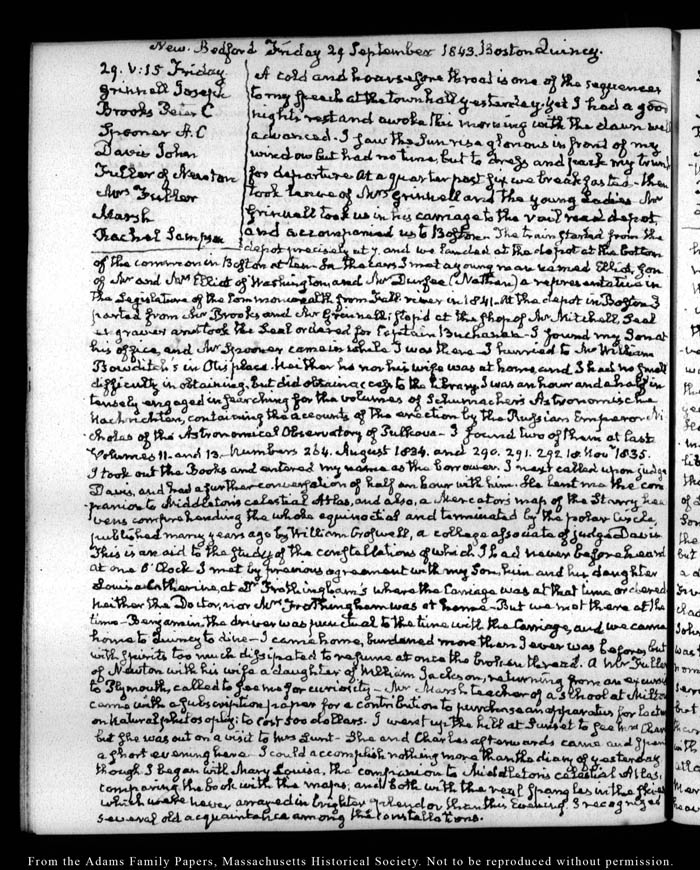 New. Bedford Friday 29 September 1843. Boston Quincy.
29. V:15 Friday
Grinnell Joseph
Brooks Peter C
Spooner A. C
Davis John
Fuller of Newton
Mrs Fuller
Marsh
Rachel Sampson
A cold and hoarse sore throat is one of the sequences
to my speech at the town hall yesterday. yet I had a good
nights rest and awoke this morning with the dawn well
advanced. I saw the Sun rise glorious in front of my
window but had no time, but to dress and pack my trunk
for departure At a quarter past six we breakfasted - then
took leave of Mrs Grinnell and the young Ladies Mr
Grinnell took us in his carriage to the rail road depot
and accompanied us to Boston - The train started from the
depot precisely at 7, and we landed at the depot at the bottom
of the common in Boston at ten. In the cars I met a young man named Elliot, son
of Mr and Mrs Elliot of Washington, and Mr Durfee (Nathan) a representative in
the Legislature of the Commonwealth from Fall river in 1841. At the depot in Boston I
parted from Mr Brooks and Mr Grinnell; stop'd at the shop of Mr Mitchell Seal
engraver and took the Seal ordered for Captain Buchanan - I found my Son at
his office, and Mr Spooner came in while I was there. I hurried to Mr William
Bowditch's in Otis place. Neither he nor his wife was at home, and I had no small
difficulty in obtaining, but did obtain access to the Library I was an hour and a half in
tensely engaged in searching for the volumes of Schumacher's Astronomische
Nachrichten, containing the accounts of the erection by the Russian Emperor Ni
cholas of the Astronomical Observatory of Pulkova - I found two of them at last
Volumes 11. and 13. Numbers 264. August 1834. and 290. 291. 292 Novr 1835.
I took out the Books and entered my name as the borrower. I next called upon judge
Davis, and had a further conversation of half an hour with him. He lent me the com
panion to Middleton's celestial Atlas, and also, a Mercator's map of the Starry hea
vens comprehending the whole equinoctial and terminated by the polar Circle,
published many years ago by William Croswell, a college associate of judge Davis
This is an aid to the study of the constellations of which I had never before heard
at one O'Clock I met by previous agreement with my Son, him and his daughter
Louisa Catherine, at Dr Frothingham's where the Carriage was at that time ordered
Neither the Doctor, nor Mrs Frothingham was at home - But we met there at the
time - Benjamin, the driver was punctual to the time with the Carriage, and we came
home to Quincy to dine - I came home, burdened more than I ever was before, but
with spirits too much dissipated to resume at once the broken thread. A Mr Fuller
of Newton with his wife a daughter of William Jackson, returning from an excursion
to Plymouth, called to see me for curiosity - Mr Marsh teacher of a school at Milton
came with a subscription paper for a contribution to purchase an apparatus for lectures
on Natural philosophy; to cost 500 dollars. I went up the hill at Sunset to see Mrs Charles
but she was out on a visit to Mrs Lunt - She and Charles afterwards came and spent
a short evening here. I could accomplish nothing more than the diary of yesterday
though I began with Mary Louisa, the companion to Middleton's celestial Atlas,
comparing the book with the maps, and both with the real Spangles in the skies
which were never arrayed in brighter splendor than this Evening. I recognized
several old acquaintance among the constellations.
From the Adams Family Papers, Massachusetts Historical Society. Not to be reproduced without permission.